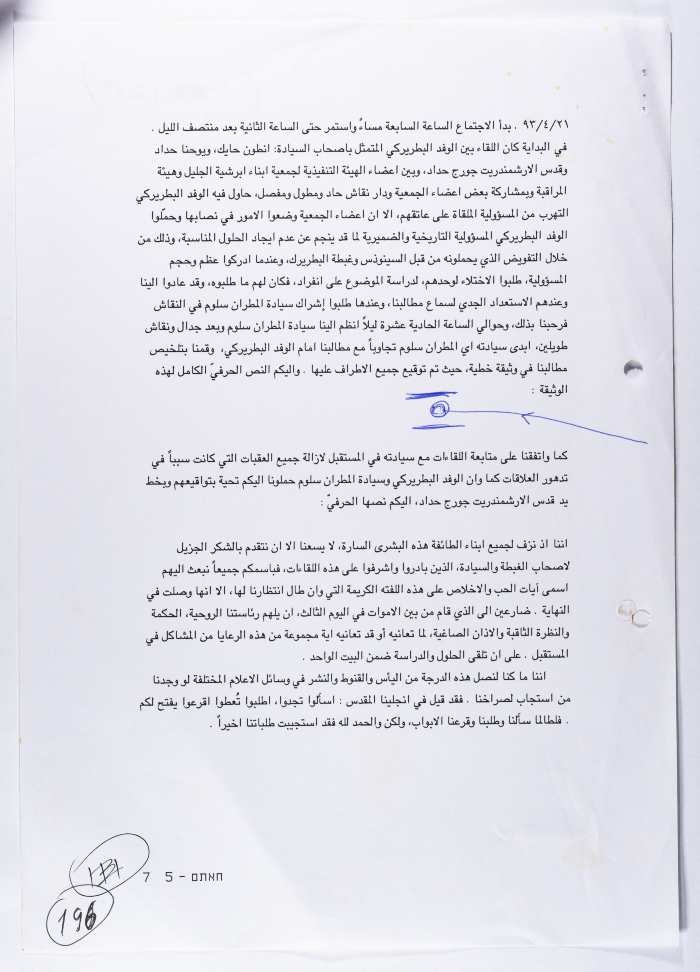 ٩٣/٤/٢١ . بدأ الاجتماع الساعة السابعة مساءً واستمر حتى الساعة الثانية بعد منتصف الليل .
في البداية كان اللقاء بين الوفد البطريركي المتمثل باصحاب السيادة: انطون حايك، ويوحنا حداد
وقدس الارشمندريت جورج حداد، وبين اعضاء الهيئة التنفيذية لجمعية ابناء ابرشية الجليل وهيئة
المراقبة وبمشاركة بعض اعضاء الجمعية ودار نقاش حاد ومطول ومفصل، حاول فيه الوفد البطريركي
التهرب من المسؤولية الملقاة على عاتقهم، الا ان اعضاء الجمعية وضعوا الامور في نصابها وحمّلوا
الوفد البطريركي المسؤولية التاريخية والضميرية لما قد ينجم عن عدم ايجاد الحلول المناسبة، وذلك من
خلال التفويض الذي يحملونه من قبل السينوذس وغبطة البطريرك، وعندما ادركوا عظم وحجم
المسؤولية، طلبوا الاختلاء لوحدهم، لدراسة الموضوع على انفراد، فكان لهم ما طلبوه، وقد عادوا الينا
وعندهم الاستعداد الجدي لسماع مطالبنا، وعندها طلبوا إشراك سيادة المطران سلوم في النقاش
فرحبنا بذلك، وحوالي الساعة الحادية عشرة ليلاً انظم الينا سيادة المطران سلوم وبعد جدال ونقاش
طويلين، ابدى سيادته اي المطران سلوم تجاوباً مع مطالبنا امام الوفد البطريركي، وقمنا بتلخيص
مطالبنا في وثيقة خطية، حيث تم توقيع جميع الاطراف عليها . واليكم النص الحرفيّ الكامل لهذه
الوثيقة :
كما واتفقنا على متابعة اللقاءات مع سيادته في المستقبل لازالة جميع العقبات التي كانت سبباً في
تدهور العلاقات كما وان الوفد البطريركي وسيادة المطران سلوم حملونا اليكم تحية بتواقيعهم وبخط
يد قدس الارشمندريت جورج حداد، اليكم نصها الحرفيّ :
اننا اذ نزف لجميع ابناء الطائفة هذه البشرى السارة، لا يسعنا الا ان نتقدم بالشكر الجزيل
لاصحاب الغبطة والسيادة، الذين بادروا واشرفوا على هذه اللقاءات، فباسمكم جميعاً نبعث اليهم
اسمى أيات الحب والاخلاص على هذه اللفته الكريمة التي وان طال انتظارنا لها، الا انها وصلت في
النهاية . ضارعين الى الذي قام من بين الاموات في اليوم الثالث، ان يلهم رئاستنا الروحية، الحكمة
والنظرة الثاقبة والاذان الصاغية، لما تعانيه أو قد تعانيه اية مجموعة من هذه الرعايا من المشاكل في
المستقبل . على ان تلقى الحلول والدراسة ضمن البيت الواحد .
اننا ما كنا لنصل هذه الدرجة من اليأس والقنوط والنشر في وسائل الاعلام المختلفة لو وجدنا
من استجاب لصراخنا . فقد قيل في انجلينا المقدس : اسألوا تجدوا، اطلبوا تُعطوا اقرعوا يفتح لكم
. فلطالما سألنا وطلبنا وقرعنا الابواب، ولكن والحمد لله فقد استجيبت طلباتنا اخيراً .
חאתם - 5 7
196